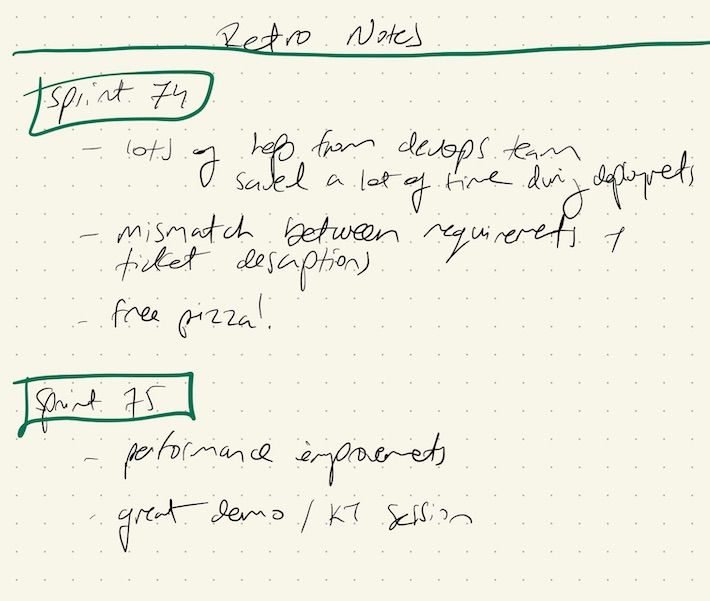 Retro Notes
Sprint 74
- lots of help from devops team
saved a lot of time during deployments
- mismatch between requirements +
ticket descriptions
- free pizza!
Sprint 75
- performance improvements
- great demo / KT session